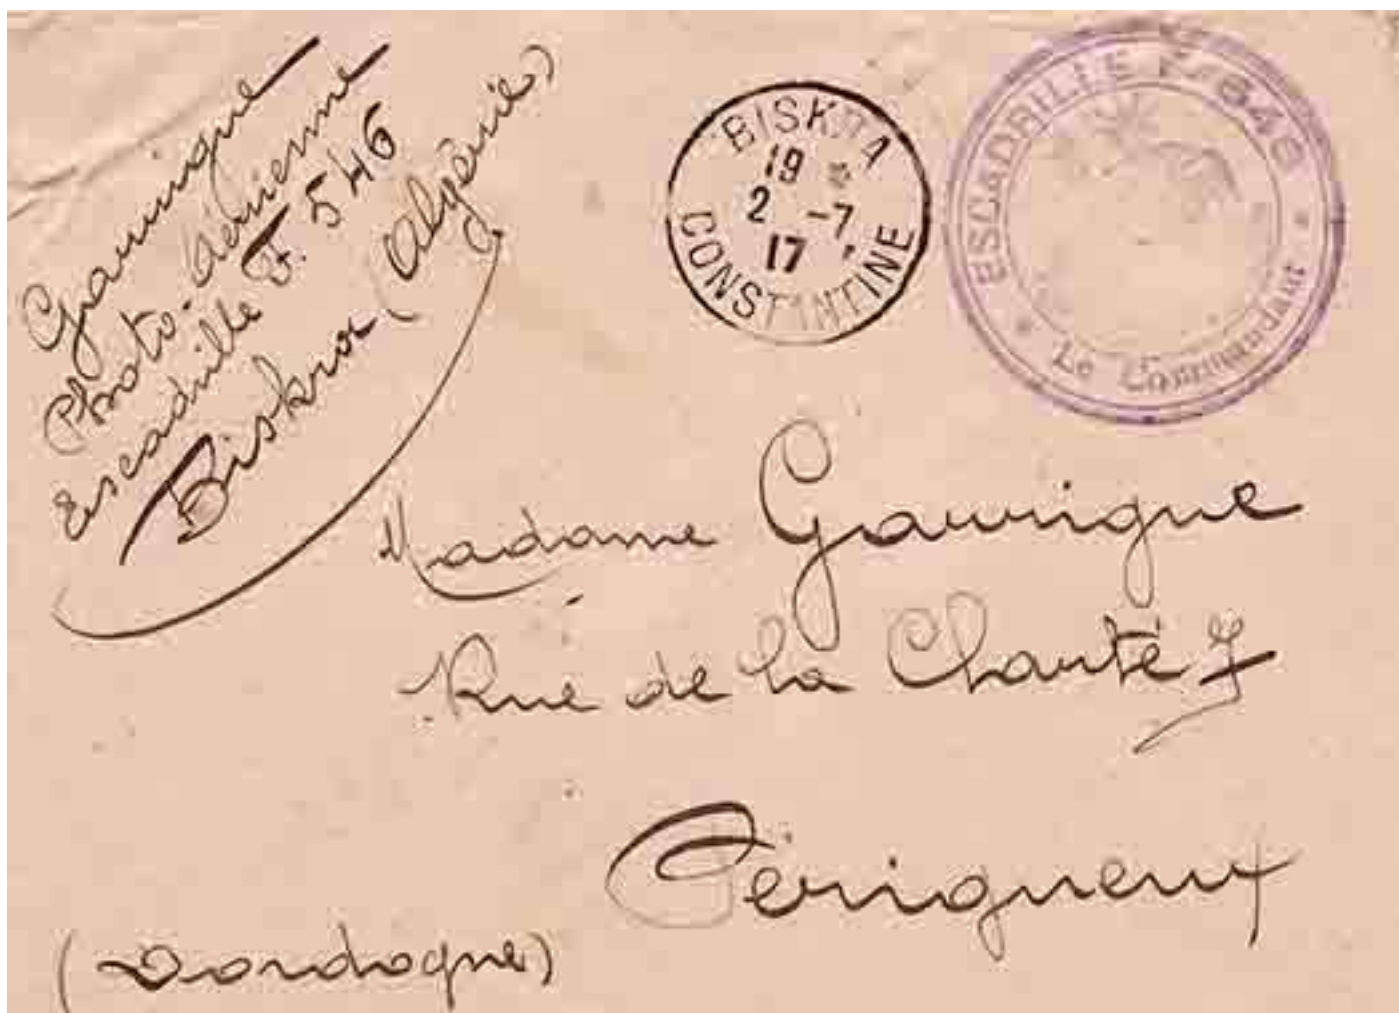 Garrigue
Photo-Aérienne
Escadrille F. 546
Biskra (Algérie)
BISKRA
19 *
2 -7
17
CONSTANTINE
ESCADRILLE F-546
Le Commandant
Madame Garrigue
Rue de la Charité 7
Périgueux
(Dordogne)